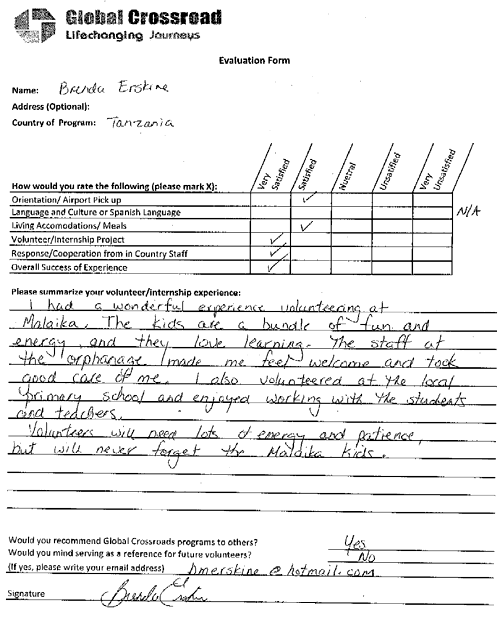 Global Crossroad
Lifechanging Journeys
Evaluation Form
Name: Brenda Erskine
Address (Optional):
Country of Program: Tanzania
How would you rate the following (please mark X):
Very Satisfied
Satisfied
Nuetral
Unsatified
Very Unsatisfied
Orientation/ Airport Pick up ✓
Language and Culture or Spanish Language N/A
Living Accomodations/ Meals ✓
Volunteer/Internship Project ✓
Response/Cooperation from in Country Staff ✓
Overall Success of Experience ✓
Please summarize your volunteer/internship experience:
I had a wonderful experience volunteering at
Malaika. The kids are a bundle of fun and
energy and they love learning. The staff at
the orphanage made me feel welcome and took
good care of me. I also volunteered at the local
primary school and enjoyed working with the students
and teachers.
Volunteers will need lots of energy and patience,
but will never forget the Malaika kids.
Would you recommend Global Crossroads programs to others? Yes
Would you mind serving as a reference for future volunteers? No
(If yes, please write your email address) bmerskine@hotmail.com
Signature Brenda Erskine